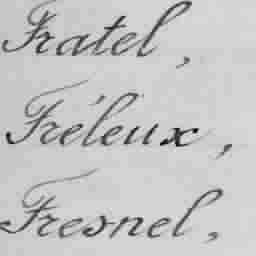 Fratel,
Fréleux,
Fresnel,